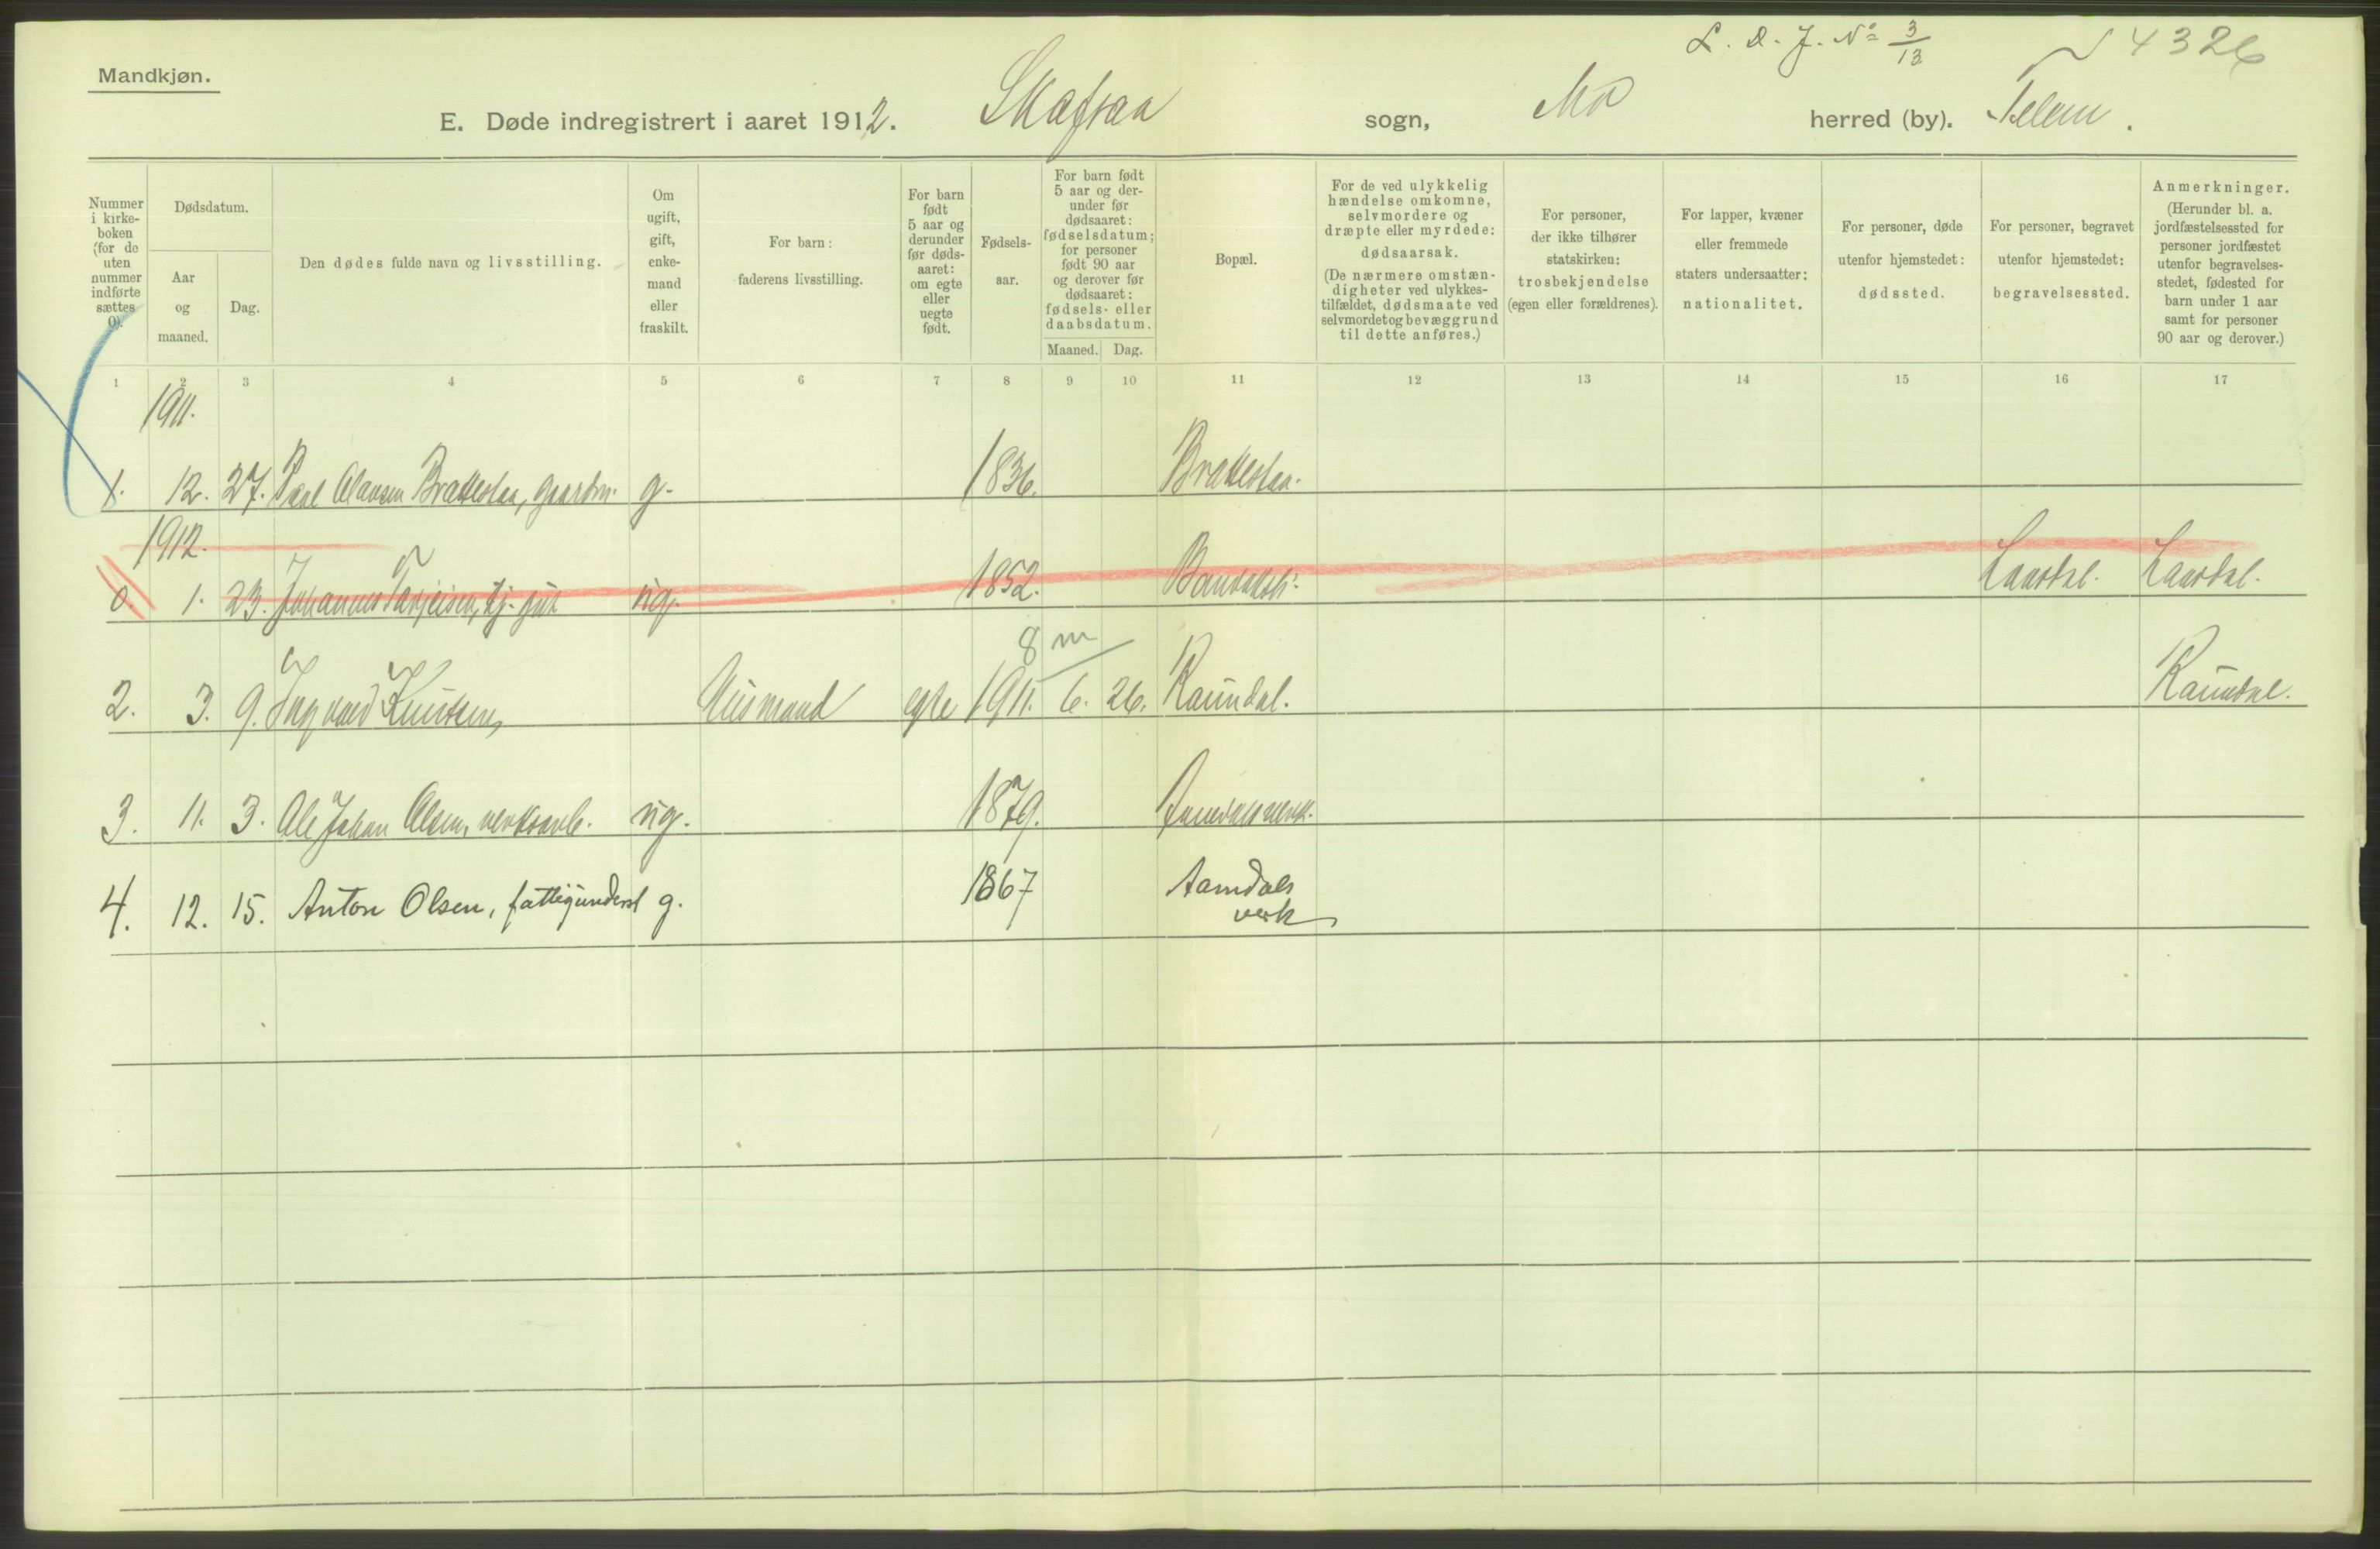 L. D. J. No 3/13
4326
Mandkjøn.
E. Døde indregistrert i aaret 1912. Skafsaa sogn, Mo herred (by). Telem.
Nummer i kirke-boken (for de uten nummer indførte sættes 0).
Dødsdatum.
Aar og maaned.
Dag.
Den dødes fulde navn og livsstilling.
Om ugift, gift, enke-mand eller fraskilt.
For barn: faderens livsstilling.
For barn født 5 aar og derunder før døds-aaret: om egte eller uegte født.
Fødsels-aar.
For barn født 5 aar og der-under før dødsaaret: fødselsdatum; for personer født 90 aar og derover før dødsaaret: fødsels- eller daabsdatum.
Maaned. Dag.
Bopæl.
For de ved ulykkelig hændelse omkomne, selvmordere og dræpte eller myrdede: dødsaarsak. (De nærmere omstæn-digheter ved ulykkes-tilfældet, dødsmaate ved selvmordet og bevæggrund til dette anføres.)
For personer, der ikke tilhører statskirken: trosbekjendelse (egen eller forældrenes).
For lapper, kvæner eller fremmede staters undersaatter: nationalitet.
For personer, døde utenfor hjemstedet: dødssted.
For personer, begravet utenfor hjemstedet: begravelsessted.
Anmerkninger. (Herunder bl. a. jordfæstelsessted for personer jordfæstet utenfor begravelses-stedet, fødested for barn under 1 aar samt for personer 90 aar og derover.)
1 2 3 4 5 6 7 8 9 10 11 12 13 14 15 16 17
1911.
1. 12. 27. Olavsen Brattestaa, gaardm. g. 1836. Brattestaa.
1912.
0. 1. 23. Johannes Tarjeisen, ug. 1852. Laardal. Laardal.
8 m
2. 3. 9. Ingvald Knutsen, Husmand egte 1911. 6. 26. Raundal. Raundal.
3. 11. 3. Ole Johan Olsen, verksarb. ug. 1879. Aamdals verk.
4. 12. 15. Anton Olsen, fattigunderst g. 1867 Aamdals
verk